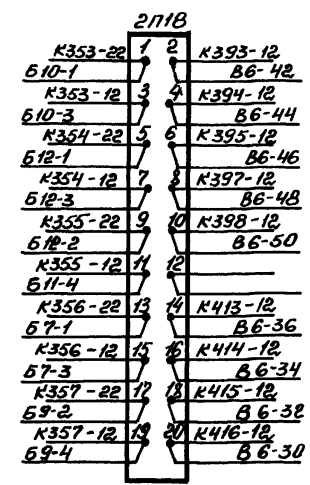 2П18
К353-22 1 2 К393-12
Б10-1 В6-42
К353-12 3 4 К394-12
Б10-3 В6-44
К354-22 5 6 К395-12
Б12-1 В6-46
К354-12 7 8 К397-12
Б12-3 В6-48
К355-22 9 10 К398-12
Б12-2 В6-50
К355-12 11 12
Б11-4
К356-22 13 14 К413-12
Б7-1 В6-36
К356-12 15 16 К414-12
Б7-3 В6-34
К357-22 17 18 К415-12
Б9-2 В6-32
К357-12 19 20 К416-12
Б9-4 В6-30